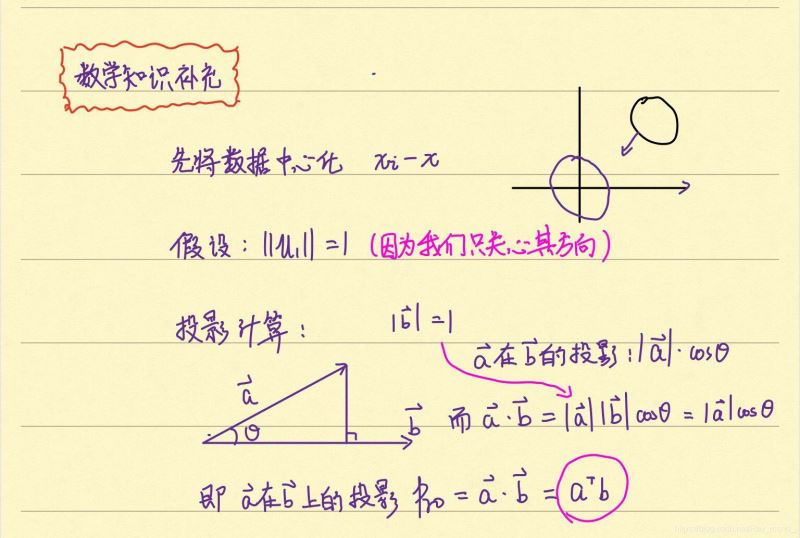 数学知识补充
先将数据中心化 xi-x
假设：||u1||=1（因为我们只关心其方向）
投影计算：
|b⃗|=1
a⃗在b⃗的投影：|a⃗|·cosθ
a⃗
θ
b⃗
而 a⃗·b⃗=|a⃗||b⃗|cosθ=|a⃗|cosθ
即 a⃗在b⃗上的投影 pro=a⃗·b⃗=aᵀb